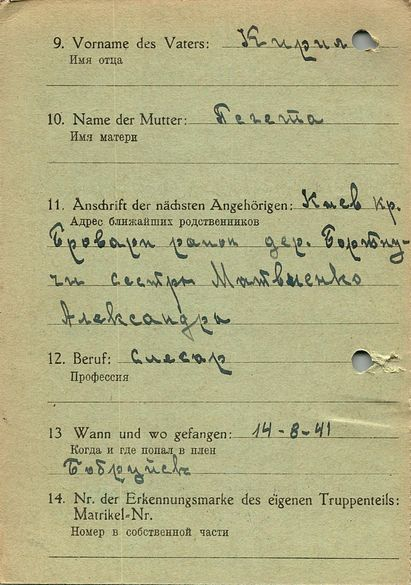 9. Vorname des Vaters: Кирил
Имя отца
10. Name der Mutter: Пегета
Имя матери
11. Anschrift der nächsten Angehörigen: Киев кр.
Адрес ближайших родственников
Бровари раион дер. Бортну-
чи сестры Матвыенко
Александра
12. Beruf: Слесар
Профессия
13 Wann und wo gefangen: 14-8-41
Когда и где попал в плен
Бобруйск
14. Nr. der Erkennungsmarke des eigenen Truppenteils:
Matrikel-Nr.
Номер в собственной части